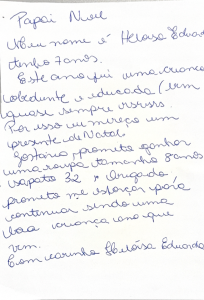 Papai Noel
Meu nome é Heloisa Eduarda
tenho 7 anos.
Este ano fui uma criança
obediente e educada (bem
quase sempre rsrsrs.
Por isso eu mereço um
presente de Natal.
Gostaria, prometo ganhar
uma roupa tamanho 8 anos
sapato 32 Obrigado
prometo me esforçar para
continuar sendo uma
boa criança ano que
vem.
Com carinho Heloísa Eduarda